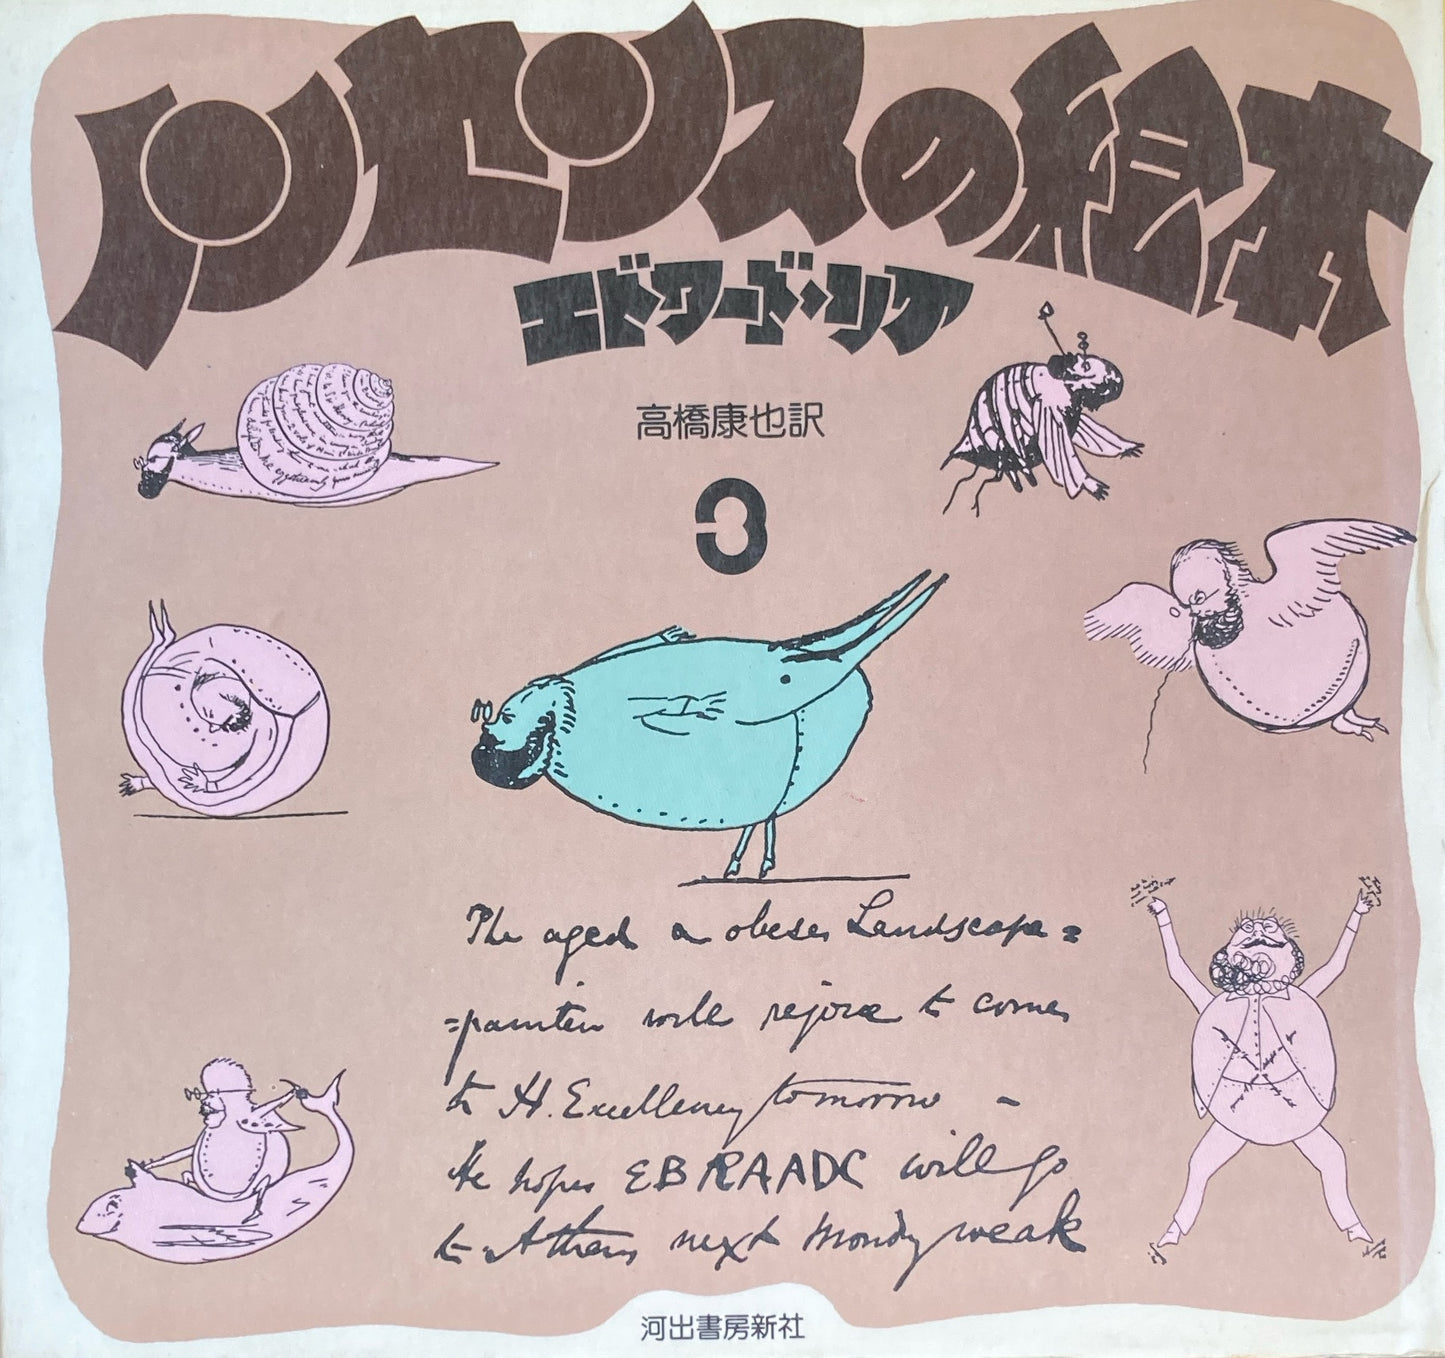 ナンセンスの絵本
エドワード・リア
高橋康也訳
3
The aged & obese Landscape =
=painter will rejoice to come
to H. Excellency tomorrow -
He hopes EBRAADC will go
to Athens next Mondy weak
河出書房新社